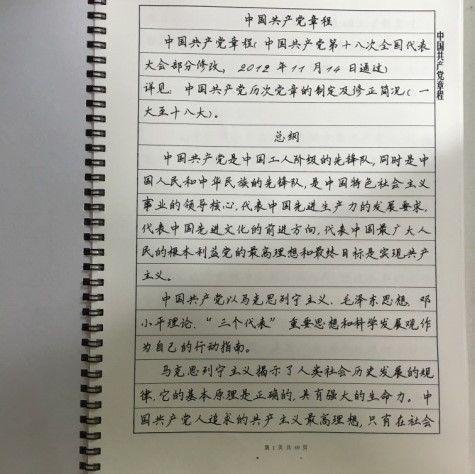 中国共产党章程
中国共产党章程
中国共产党章程(中国共产党第十八次全国代表
大会部分修改，2012年11月14日通过)
详见：中国共产党历次党章的制定及修正简况(一
大至十八大)。
总纲
中国共产党是中国工人阶级的先锋队，同时是中
国人民和中华民族的先锋队，是中国特色社会主义
事业的领导核心，代表中国先进生产力的发展要求，
代表中国先进文化的前进方向，代表中国最广大人
民的根本利益党的最高理想和最终目标是实现共产
主义。
中国共产党以马克思列宁主义、毛泽东思想、邓
小平理论、“三个代表”重要思想和科学发展观作
为自己的行动指南。
马克思列宁主义揭示了人类社会历史发展的规
律，它的基本原理是正确的，具有强大的生命力。中
国共产党人追求的共产主义最高理想，只有在社会